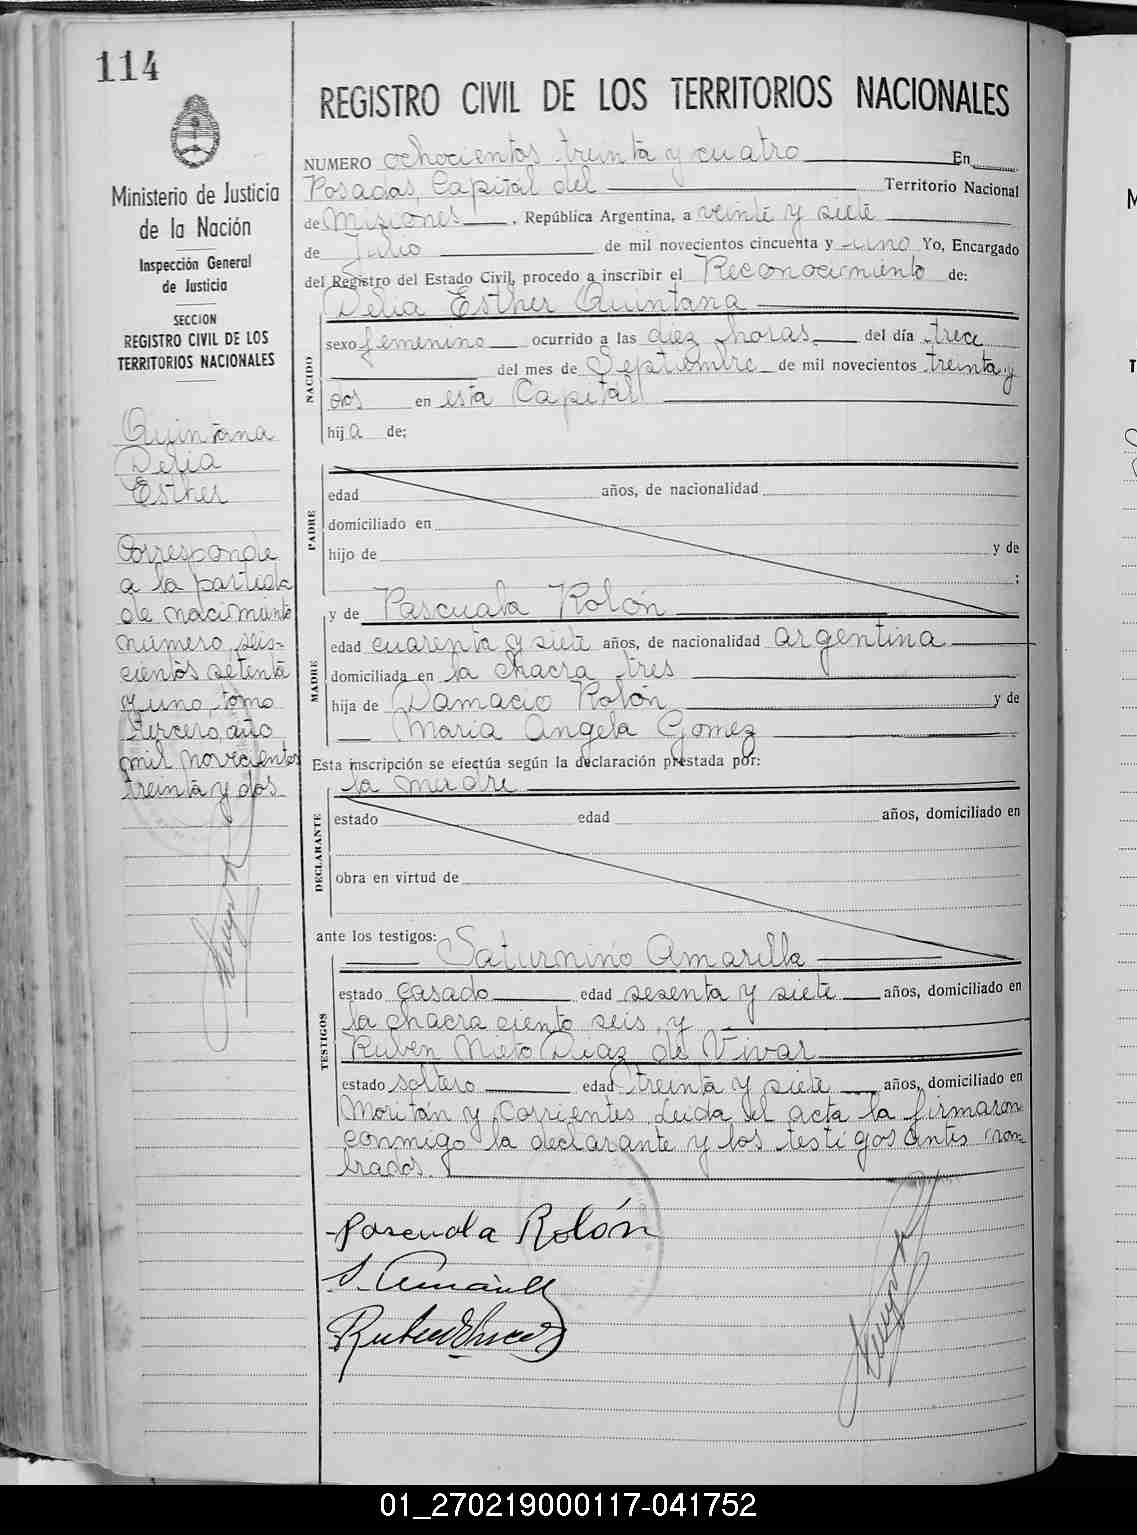 114
Ministerio de Justicia
de la Nación
Inspección General
de Justicia
SECCION
REGISTRO CIVIL DE LOS
TERRITORIOS NACIONALES
Quintana
Delia
Esther
Corresponde
a la partida
de nacimiento
número seis-
cientos setenta
y uno, tomo
tercero, año
mil novecientos
treinta y dos
REGISTRO CIVIL DE LOS TERRITORIOS NACIONALES
NUMERO ochocientos treinta y cuatro En
Posadas, Capital del Territorio Nacional
de Misiones, República Argentina, a veinte y siete
de Julio de mil novecientos cincuenta y uno Yo, Encargado
del Registro del Estado Civil, procedo a inscribir el Reconocimiento de:
Delia Esther Quintana
NACIDO
sexo femenino ocurrido a las diez horas del día trece
del mes de Septiembre de mil novecientos treinta y
dos en esta Capital
hija de:
PADRE
edad años, de nacionalidad
domiciliado en
hijo de y de
;
y de Pascuala Rolón
MADRE
edad cuarenta y siete años, de nacionalidad argentina
domiciliada en la chacra tres
hija de Damacio Rolón y de
Maria Angela Gomez
Esta inscripción se efectúa según la declaración prestada por:
la madre
DECLARANTE
estado edad años, domiciliado en
obra en virtud de
ante los testigos:
Saturnino Amarilla
TESTIGOS
estado casado edad sesenta y siete años, domiciliado en
la chacra ciento seis, y
Ruben Nieto Diaz de Vivar
estado soltero edad treinta y siete años, domiciliado en
Moritán y Corrientes. Leida el acta la firmaron
conmigo la declarante y los testigos antes nom-
brados.
Pascuala Rolón
S. Amarilla
01_270219000117-041752